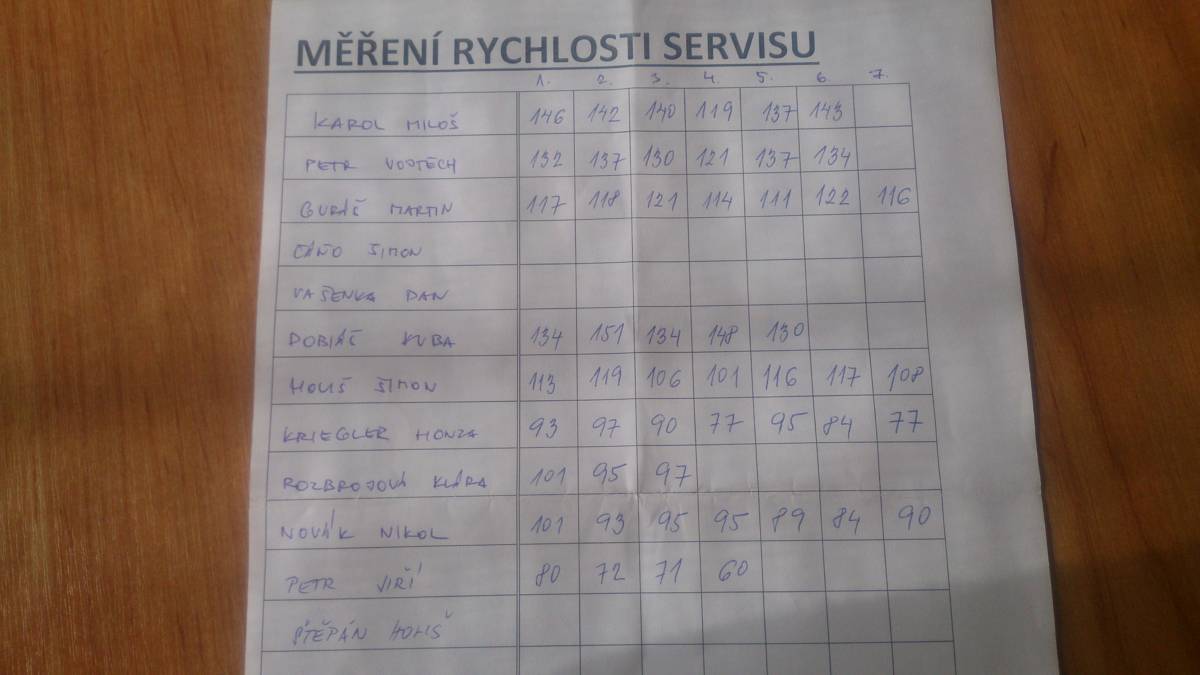 MĚŘENÍ RYCHLOSTI SERVISU
1. 2. 3. 4. 5. 6. 7.
KAROL MILOŠ 146 142 140 119 137 143
PETR VOJTĚCH 132 137 130 121 137 134
GURÁŠ MARTIN 117 118 121 114 111 122 116
ČÁŇO ŠIMON
VAŠENKA DAN
DOBIÁŠ KUBA 134 151 134 148 130
HOLIŠ ŠIMON 113 119 106 101 116 117 108
KRIEGLER HONZA 93 97 90 77 95 84 77
ROZBROJOVÁ KLÁRA 101 95 97
NOVÁK NIKOL 101 93 95 95 89 84 90
PETR JIŘÍ 80 72 71 60
ŠTĚPÁN HOLIŠ